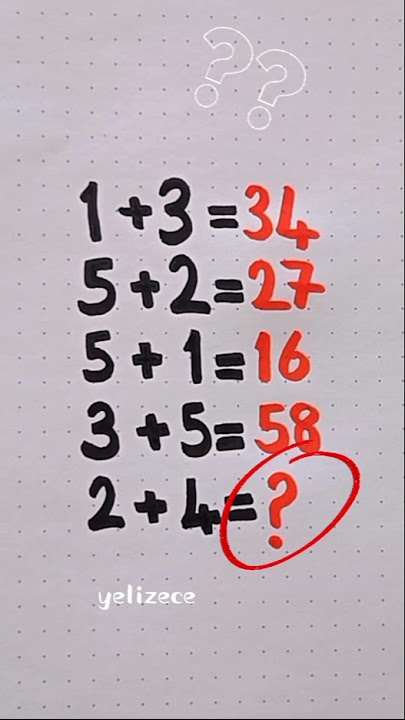 ??
1+3=34
5+2=27
5+1=16
3+5=58
2+4=?
yelizece